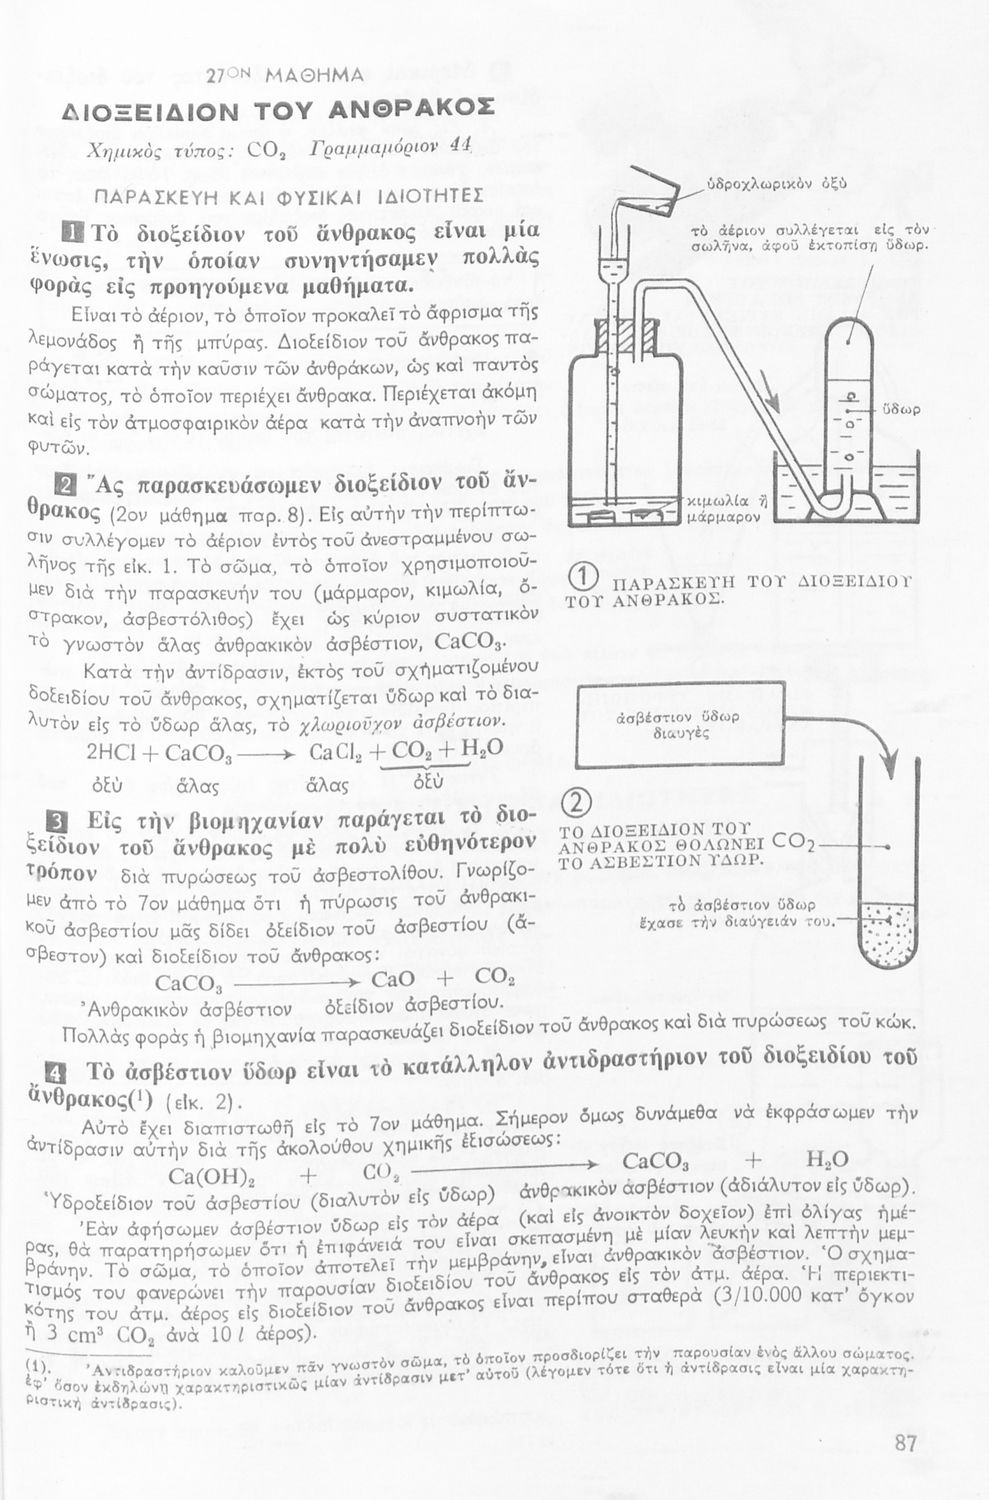 27ΟΝ ΜΑΘΗΜΑ
ΔΙΟΞΕΙΔΙΟΝ ΤΟΥ ΑΝΘΡΑΚΟΣ
Χημικὸς τύπος: CO₂ Γραμμαμόριον 44
ΠΑΡΑΣΚΕΥΗ ΚΑΙ ΦΥΣΙΚΑΙ ΙΔΙΟΤΗΤΕΣ
1 Τὸ διοξείδιον τοῦ ἄνθρακος εἶναι μία
ἕνωσις, τὴν ὁποίαν συνηντήσαμεν πολλὰς
φορὰς εἰς προηγούμενα μαθήματα.
Εἶναι τὸ ἀέριον, τὸ ὁποῖον προκαλεῖ τὸ ἄφρισμα τῆς
λεμονάδος ἢ τῆς μπύρας. Διοξείδιον τοῦ ἄνθρακος πα-
ράγεται κατὰ τὴν καῦσιν τῶν ἀνθράκων, ὡς καὶ παντὸς
σώματος, τὸ ὁποῖον περιέχει ἄνθρακα. Περιέχεται ἀκόμη
καὶ εἰς τὸν ἀτμοσφαιρικὸν ἀέρα κατὰ τὴν ἀναπνοὴν τῶν
φυτῶν.
2 Ἂς παρασκευάσωμεν διοξείδιον τοῦ ἄν-
θρακος (2ον μάθημα παρ. 8). Εἰς αὐτὴν τὴν περίπτω-
σιν συλλέγομεν τὸ ἀέριον ἐντὸς τοῦ ἀνεστραμμένου σω-
λῆνος τῆς εἰκ. 1. Τὸ σῶμα, τὸ ὁποῖον χρησιμοποιοῦ-
μεν διὰ τὴν παρασκευήν του (μάρμαρον, κιμωλία, ὄ-
στρακον, ἀσβεστόλιθος) ἔχει ὡς κύριον συστατικὸν
τὸ γνωστὸν ἅλας ἀνθρακικὸν ἀσβέστιον, CaCO₃.
Κατὰ τὴν ἀντίδρασιν, ἐκτὸς τοῦ σχηματιζομένου
δοξειδίου τοῦ ἄνθρακος, σχηματίζεται ὕδωρ καὶ τὸ δια-
λυτὸν εἰς τὸ ὕδωρ ἅλας, τὸ χλωριοῦχον ἀσβέστιον.
2HCl + CaCO₃ ⟶ CaCl₂ + CO₂ + H₂O
ὀξὺ ἅλας ἅλας ὀξὺ
3 Εἰς τὴν βιομηχανίαν παράγεται τὸ διο-
ξείδιον τοῦ ἄνθρακος μὲ πολὺ εὐθηνότερον
τρόπον διὰ πυρώσεως τοῦ ἀσβεστολίθου. Γνωρίζο-
μεν ἀπὸ τὸ 7ον μάθημα ὅτι ἡ πύρωσις τοῦ ἀνθρακι-
κοῦ ἀσβεστίου μᾶς δίδει ὀξείδιον τοῦ ἀσβεστίου (ἄ-
σβεστον) καὶ διοξείδιον τοῦ ἄνθρακος:
CaCO₃ ⟶ CaO + CO₂
Ἀνθρακικὸν ἀσβέστιον ὀξείδιον ἀσβεστίου.
Πολλὰς φορὰς ἡ βιομηχανία παρασκευάζει διοξείδιον τοῦ ἄνθρακος καὶ διὰ πυρώσεως τοῦ κώκ.
4 Τὸ ἀσβέστιον ὕδωρ εἶναι τὸ κατάλληλον ἀντιδραστήριον τοῦ διοξειδίου τοῦ
ἄνθρακος(¹) (εἰκ. 2).
Αὐτὸ ἔχει διαπιστωθῆ εἰς τὸ 7ον μάθημα. Σήμερον ὅμως δυνάμεθα νὰ ἐκφράσωμεν τὴν
ἀντίδρασιν αὐτὴν διὰ τῆς ἀκολούθου χημικῆς ἐξισώσεως:
Ca(OH)₂ + CO₂ ⟶ CaCO₃ + H₂O
Ὑδροξείδιον τοῦ ἀσβεστίου (διαλυτὸν εἰς ὕδωρ) ἀνθρακικὸν ἀσβέστιον (ἀδιάλυτον εἰς ὕδωρ).
Ἐὰν ἀφήσωμεν ἀσβέστιον ὕδωρ εἰς τὸν ἀέρα (καὶ εἰς ἀνοικτὸν δοχεῖον) ἐπὶ ὀλίγας ἡμέ-
ρας, θὰ παρατηρήσωμεν ὅτι ἡ ἐπιφάνειά του εἶναι σκεπασμένη μὲ μίαν λευκὴν καὶ λεπτὴν μεμ-
βράνην. Τὸ σῶμα, τὸ ὁποῖον ἀποτελεῖ τὴν μεμβράνην, εἶναι ἀνθρακικὸν ἀσβέστιον. Ὁ σχημα-
τισμός του φανερώνει τὴν παρουσίαν διοξειδίου τοῦ ἄνθρακος εἰς τὸν ἀτμ. ἀέρα. Ἡ περιεκτι-
κότης του ἀτμ. ἀέρος εἰς διοξείδιον τοῦ ἄνθρακος εἶναι περίπου σταθερὰ (3/10.000 κατ' ὄγκον
ἢ 3 cm³ CO₂ ἀνὰ 10 l ἀέρος).
(1). Ἀντιδραστήριον καλοῦμεν πᾶν γνωστὸν σῶμα, τὸ ὁποῖον προσδιορίζει τὴν παρουσίαν ἑνὸς ἄλλου σώματος.
ἐφ' ὅσον ἐκδηλώνῃ χαρακτηριστικῶς μίαν ἀντίδρασιν μετ' αὐτοῦ (λέγομεν τότε ὅτι ἡ ἀντίδρασις εἶναι μία χαρακτη-
ριστικὴ ἀντίδρασις).
ὑδροχλωρικὸν ὀξὺ
τὸ ἀέριον συλλέγεται εἰς τὸν
σωλῆνα, ἀφοῦ ἐκτοπίσῃ ὕδωρ.
ὕδωρ
κιμωλία ἢ
μάρμαρον
1 ΠΑΡΑΣΚΕΥΗ ΤΟΥ ΔΙΟΞΕΙΔΙΟΥ
ΤΟΥ ΑΝΘΡΑΚΟΣ.
ἀσβέστιον ὕδωρ
διαυγὲς
2
ΤΟ ΔΙΟΞΕΙΔΙΟΝ ΤΟΥ
ΑΝΘΡΑΚΟΣ ΘΟΛΩΝΕΙ
ΤΟ ΑΣΒΕΣΤΙΟΝ ΥΔΩΡ.
CO₂
τὸ ἀσβέστιον ὕδωρ
ἔχασε τὴν διαύγειάν του.
87